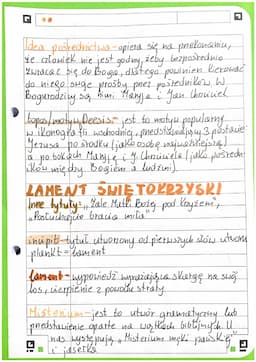 Idea pośrednictwa - opiera się na przekonaniu,
że człowiek nie jest godny, żeby bezpośrednio
zwracać się do Boga, dlatego powinien kierować
do niego swoje prośby przez pośredników. W
Bogurodzicy są nimi Maryja i Jan Chrzciciel
topos/motyw Deesis - jest to motyw popularny
w ikonografii wschodniej, przedstawiający 3 postacie
Jezusa po środku (jako osobę najważniejszą)
a po bokach Maryję i J. Chrzciciela (jako pośredni-
ków między Bogiem a ludźmi).
LAMENT ŚWIĘTOKRZYSKI
Inne tytuły: "Żale Matki Bożej pod krzyżem",
"Posłuchajcie bracia miła"
incipit - tytuł utworzony od pierwszych słów utworu
plankt = lament
Lament - wypowiedź wyrażająca skargę na swój
los, cierpienie z powodu straty.
Misterium - jest to utwór dramatyczny lub
przedstawienie oparte na wątkach biblijnych. U
nas występują "Misterium męki pańskiej"
i jasełka.